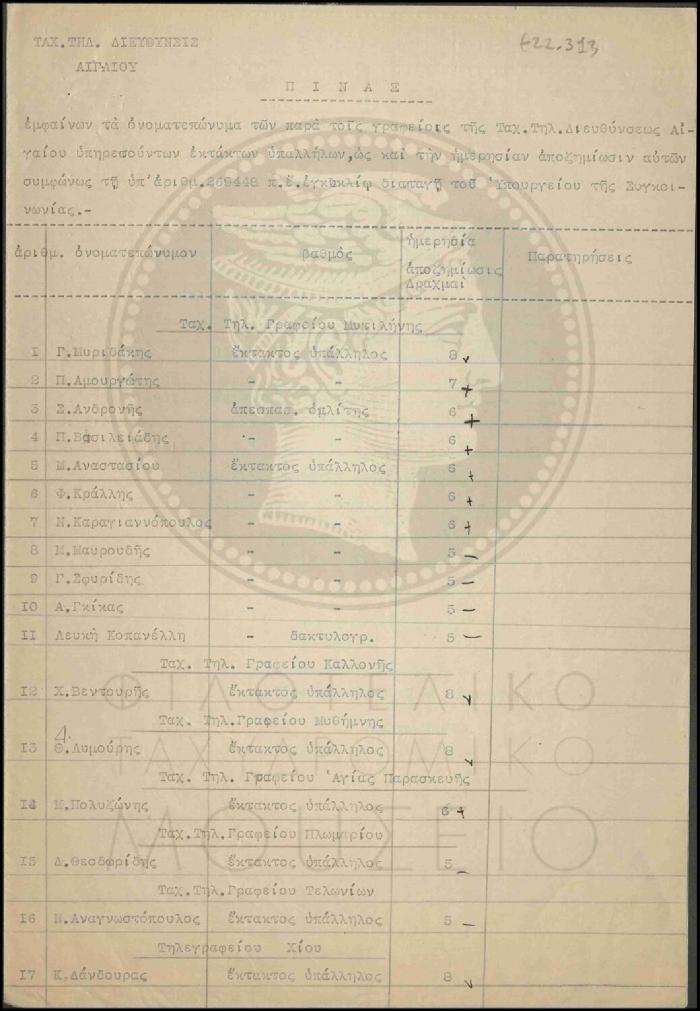 ΤΑΧ.ΤΗΛ. ΔΙΕΥΘΥΝΣΙΣ
ΑΙΓΑΙΟΥ
Ε22.313
Π Ι Ν Α Ξ
ἐμφαίνων τὰ ὀνοματεπώνυμα τῶν παρὰ τοῖς γραφείοις τῆς Ταχ.Τηλ.Διευθύνσεως Αἰ-
γαίου ὑπηρεσούντων ἐκτάκτων ὑπαλλήλων,ὡς καὶ τὴν ἡμερησίαν ἀποζημίωσιν αὐτῶν
συμφώνως τῇ ὑπ'ἀριθμ.269448 π.ἔ.ἐγκυκλίῳ διαταγῇ τοῦ Ὑπουργείου τῆς Συγκοι-
νωνίας.-
ἀριθμ. ὀνοματεπώνυμον βαθμὸς ἡμερησία ἀποζημίωσις Δραχμαὶ Παρατηρήσεις
Ταχ. Τηλ. Γραφείου Μυτιλήνης
1 Γ.Μυριδάκης ἔκτακτος ὑπάλληλος 8
2 Π.Αμουργώτης - - 7 +
3 Σ.Ανδρονῆς ἀπεσπασ. ὁπλίτης 6 +
4 Π.Βασιλειάδης - - 6 +
5 Μ.Αναστασίου ἔκτακτος ὑπάλληλος 6 +
6 Φ.Κράλλης - - 6 +
7 Ν.Καραγιαννόπουλος - - 6 +
8 Μ.Μαυρουδῆς - - 5 —
9 Γ.Σφυρίδης - - 5 —
10 Α.Γκίκας - - 5 —
11 Λευκὴ Κοπανέλλη - δακτυλογρ. 5 —
Ταχ. Τηλ. Γραφείου Καλλονῆς
12 Χ.Βεντουρῆς ἔκτακτος ὑπάλληλος 8
Ταχ. Τηλ.Γραφείου Μυθήμνης
13 Θ.Λυμούρης ἔκτακτος ὑπάλληλος 8
Ταχ. Τηλ. Γραφείου Ἁγίας Παρασκευῆς
14 Μ.Πολυζώνης ἔκτακτος ὑπάλληλος 6 +
Ταχ.Τηλ.Γραφείου Πλωμαρίου
15 Δ.Θεοδωρίδης ἔκτακτος ὑπάλληλος 5 —
Ταχ.Τηλ.Γραφείου Τελωνίων
16 Ν.Αναγνωστόπουλος ἔκτακτος ὑπάλληλος 5 —
Τηλεγραφείου Χίου
17 Κ.Δάνδουρας ἔκτακτος ὑπάλληλος 8
ΦΙΛΟΤΕΛΙΚΟ
ΤΑΧΥΔΡΟΜΙΚΟ
ΜΟΥΣΕΙΟ